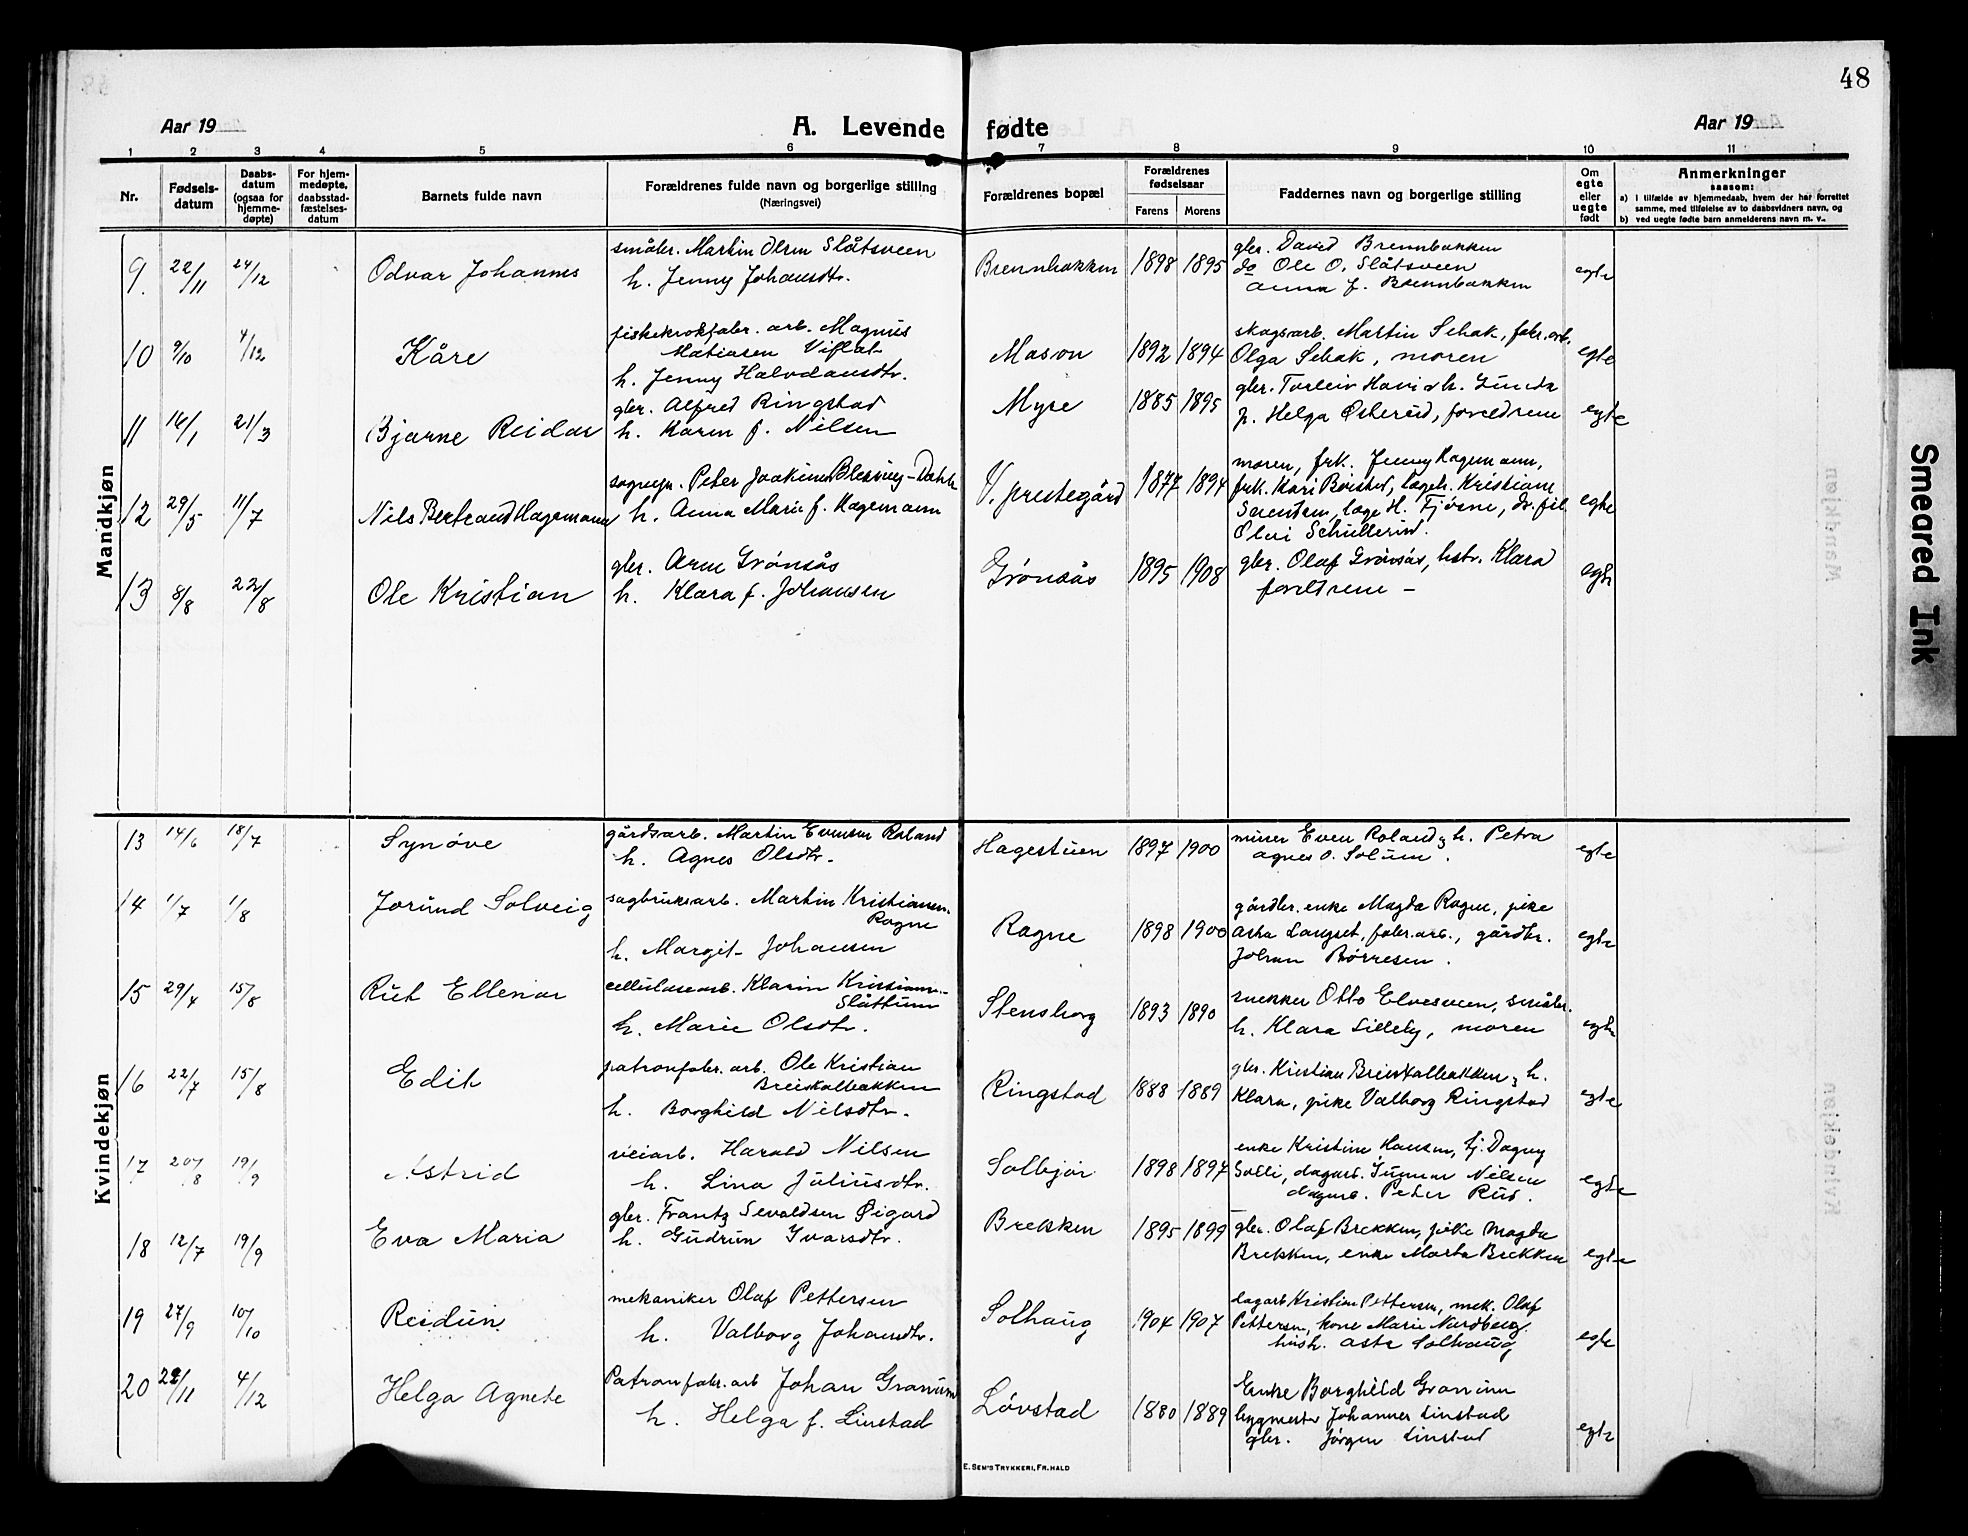 48
Aar 19
A. Levende fødte
Aar 19
1 2 3 4 5 6 7 8 9 10 11
Nr.
Fødsels-
datum
Daabs-
datum
(ogsaa for
hjemme-
døpte)
For hjem-
medøpte,
daabsstad-
fæstelses-
datum
Barnets fulde navn
Forældrenes fulde navn og borgerlige stilling
(Næringsvei)
Forældrenes bopæl
Forældrenes
fødselsaar
Farens Morens
Faddernes navn og borgerlige stilling
Om
egte
eller
uegte
født
Anmerkninger
saasom:
a) i tilfælde av hjemmedaab, hvem der har forrettet
samme, med tilføielse av to daabsvidners navn, og
b) ved uegte fødte barn anmelderens navn m. v.
Mandkjøn
9 22/11 24/12 Odvar Johannes
småbr. Martin Olsen Slåtsveen
h. Jenny Johansdtr.
Brennbakken 1898 1895
gbr. David Brennbakken
do Ole O. Slåtsveen
Anna f. Brennbakken
egte
10 9/10 4/12 Kåre
fiskekrokfabr. arb. Magnus
Matiasen Viflat
h. Jenny Halvdansdtr.
Mason 1892 1894
skogsarb. Martin Sehak, fabr. arb.
Olga Sehak, moren
egte
11 16/1 21/3 Bjarne Reidar
gbr. Alfred Ringstad
h. Karen f. Nilsen
Myre 1885 1895
gbr. Torleiv Hovi & h. Gunda
p. Helga Østerud, foreldrene
egte
12 29/5 11/7 Nils Bertrand Hagemann
sognepr. Peter Joakim Blessing-Dahle
h. Anna Marie f. Hagemann
V. prestegård 1877 1894
moren, frk. Jenny Hagemann,
frk. Kari Børstad, lægeh. Kristiane
Svendsen, læge H. Fjøsne, dr. fil.
Olai Schulerud.
egte
13 8/8 22/8 Ole Kristian
gbr. Arne Grønsås
h. Klara f. Johansen
Grønsås 1895 1908
gbr. Olaf Grønsås, hstr. Klara
foreldrene –
egte
Kvindekjøn
13 14/6 18/7 Synøve
gårdsarb. Martin Evensen Roland
h. Agnes Olsdtr.
Hagestuen 1897 1900
murer Even Roland & h. Petra
Agnes O. Solum.
egte
14 1/7 1/8 Jorund Solveig
sagbruksarb. Martin Kristiansen
Ragne
h. Margit Johansen
Ragne 1898 1900
gårdbr. enke Magda Ragne, pike
Asta Langset, fabr. arb., gårdbr.
Johan Børresen.
egte
15 29/4 15/8 Rut Ellenor
cellulosearb. Klarin Kristians.
Slåttum
h. Marie Olsdtr.
Stensborg 1893 1890
snekker Otto Elvesveen, småbr.
h. Klara Lilleby, moren
egte
16 22/7 15/8 Edit
patronfabr. arb. Ole Kristian
Breiskalbakken
h. Borghild Nilsdtr.
Ringstad 1888 1889
gbr. Kristian Breiskalbakken & h.
Klara, pike Valborg Ringstad
egte
17 20/8 19/9 Astrid
veiarb. Harald Nilsen
h. Lina Juliusdtr.
Solbjør 1898 1897
enke Kristine Hansen, tj. Dagny
Solli, dagarb. Ingmar Nilsen
dagarb. Peter Rud.
egte
18 12/7 19/9 Eva Maria
gbr. Frantz Sevaldsen Øigard
h. Gudrun Ivarsdtr.
Brekken 1895 1899
gbr. Olaf Brekken, pike Magda
Brekken, enke Marta Brekken
egte
19 27/9 10/10 Reidun
mekaniker Olaf Pettersen
h. Valborg Johansdtr.
Solhaug 1904 1907
dagarb Kristian Pettersen, mek. Olaf
Pettersen, kone Marie Nordberg.
hush. Asta Solhaug
egte
20 22/11 4/12 Helga Agnete
Patronfabr. arb Johan Granum
h. Helga f. Linstad
Løvstad 1880 1889
Enke Borghild Granum
bygmester Johannes Linstad
gbr. Jørgen Linstad
egte
E. SEM'S TRYKKERI, FR.HALD
Smeared Ink